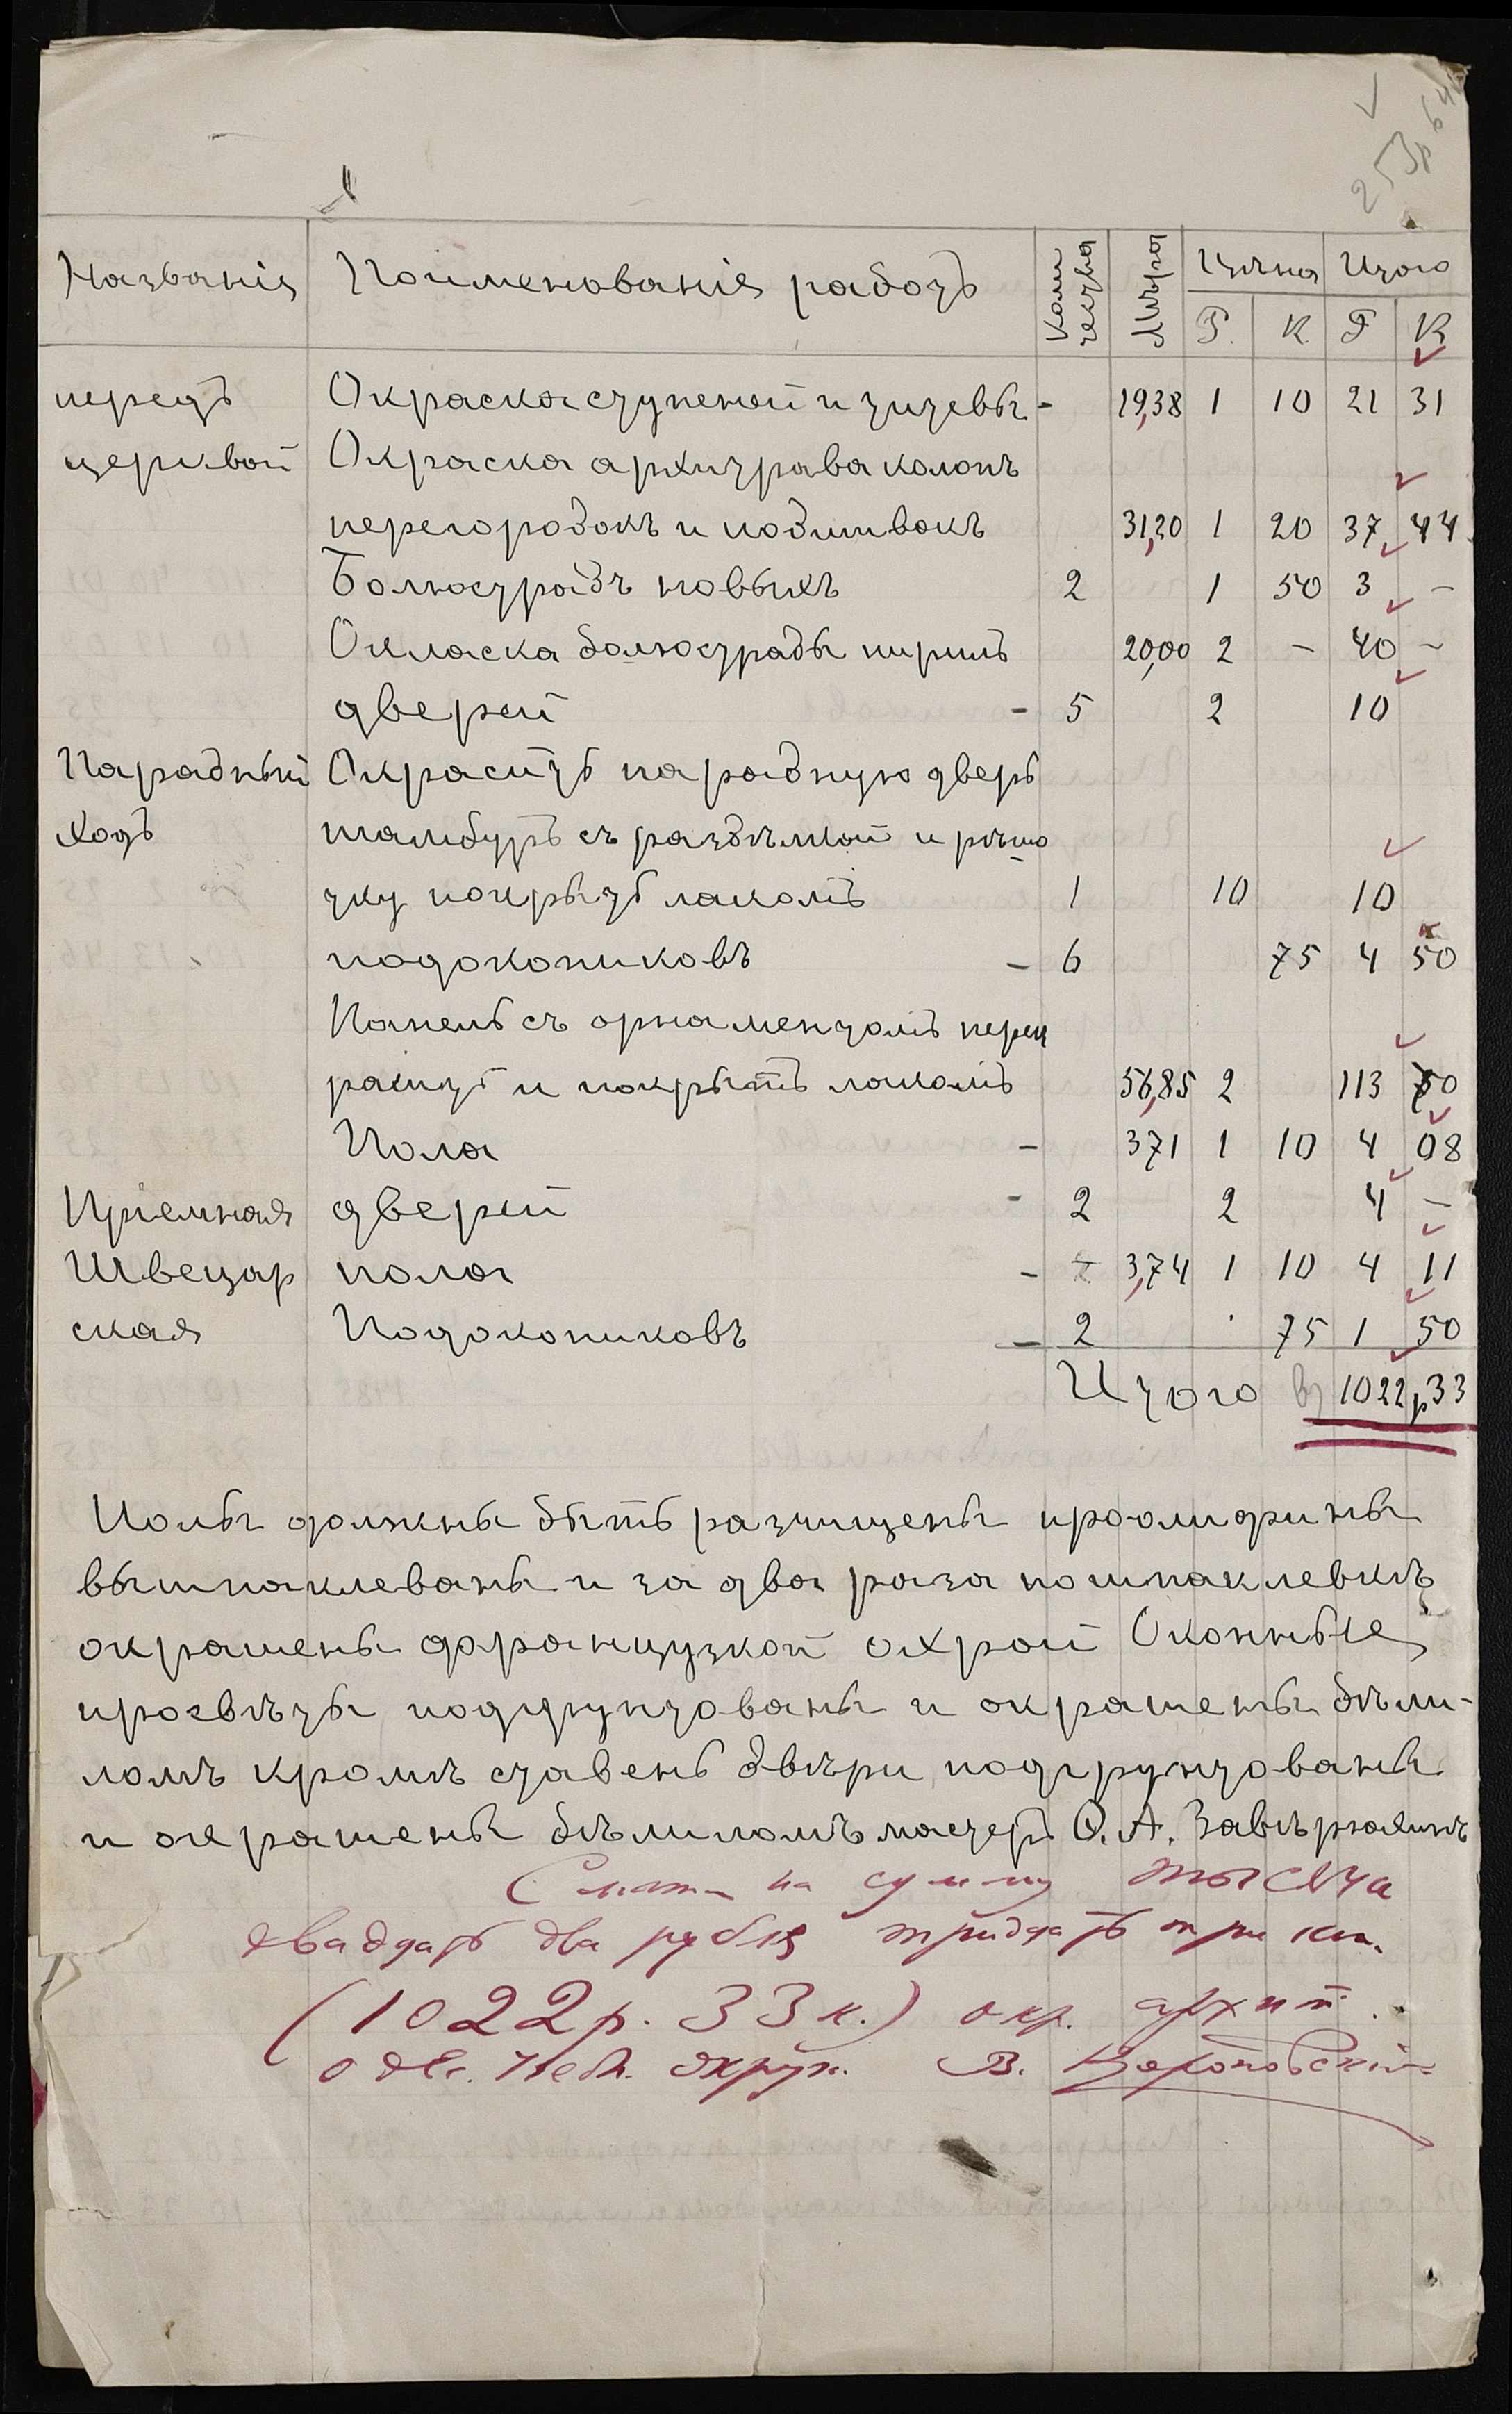 253р 64
Названія Поименованія работъ Коли чества Мѣра Цѣна Итого
Р. К. Р К
передъ Окраска ступеней и титевы - 19,38 1 10 21 31
церквой Окраска архитрава колонъ
перегородокъ и подшивокъ 31,20 1 20 37 44
Болюстрадъ новыхъ 2 1 50 3 -
Окласка болюстрады пирилъ 20,00 2 - 40 -
дверей - 5 2 10
Парадный Окрасить парадную дверь
Ходъ тамбуръ съ раздѣлкой и рѣшо
тку покрыть лакомъ 1 10 10
подоконниковъ - 6 75 4 50
Панель съ орнаментомъ перек
расить и покрыть лакомъ 56,85 2 113 70
Пола - 371 1 10 4 08
Пріемная дверей - 2 2 4 -
Швецар пола - 3,74 1 10 4 11
ская Подоконниковъ - 2 75 1 50
Итого 1022р33
Полы должны быть разчищены проолифины
вышпаклеваны и за два раза по шпаклевкѣ
окрашены французкой охрой Оконные
прозвѣты подгрунтованы и окрашены бѣли-
ломъ кромѣ ставень двѣри подгрунтованы
и окрашены бѣлиломъ мастеръ О. А. Завѣрткинъ
Смета на сумму тысяча
двадцать два рубля тридцать три коп.
(1022р. 33 к.) окр. архит.
Одес. Учебн. округа. В.